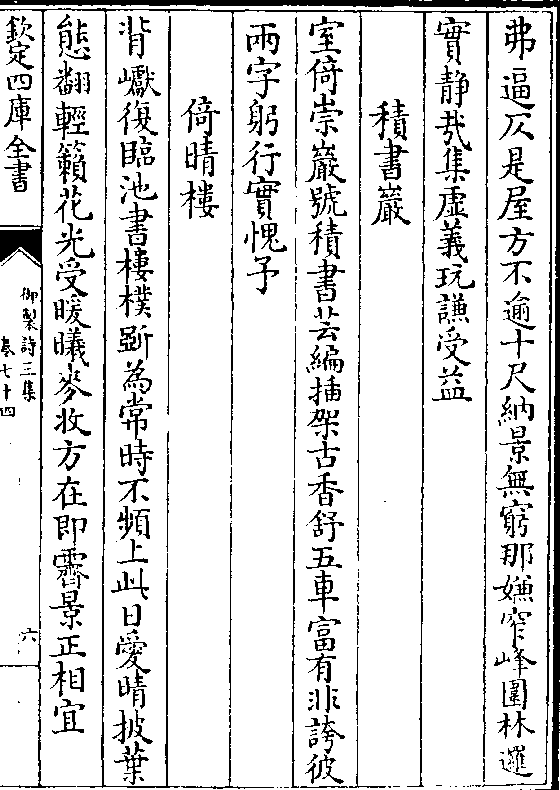 弗逼仄是屋方不逾十尺納景無窮那嫌窄峰圍林邏
實静㢤集虚義玩謙受益
積書巖
室倚崇巖號積書芸編揷架古香舒五車富有非誇彼
兩字躬行實愧予
倚晴樓
背巘復臨池書樓樸斵為常時不頻上此日愛晴披葉
態翻輕籟花光受暖曦麥收方在即霽景正相宜
欽定四庫全書
御製詩三集
卷七十四
六